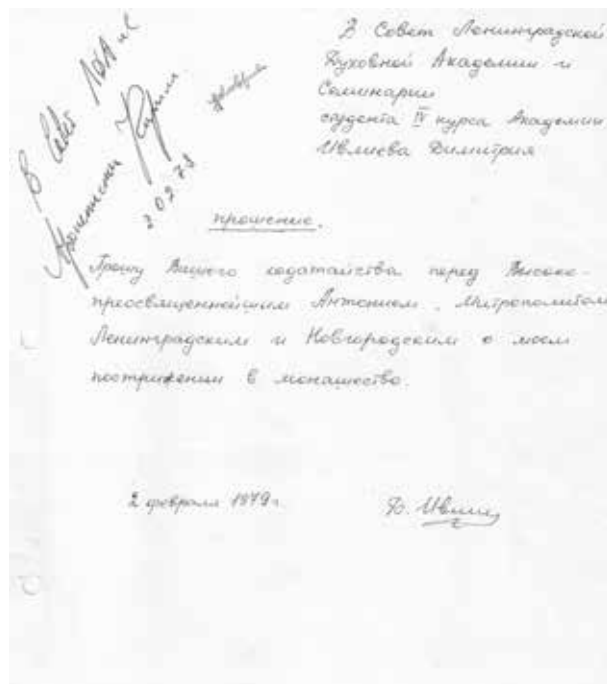 В Совет ЛДА и С
Архиепископ Кирилл
2 02 79
В Совет Ленинградской
Духовной Академии и
Семинарии
студента IV курса Академии
Ивлиева Димитрия
прошение.
Прошу Вашего ходатайства перед Высоко-
преосвященнейшим Антонием, Митрополитом
Ленинградским и Новгородским о моем
пострижении в монашество.
2 февраля 1979 г.
Д. Ивлиев